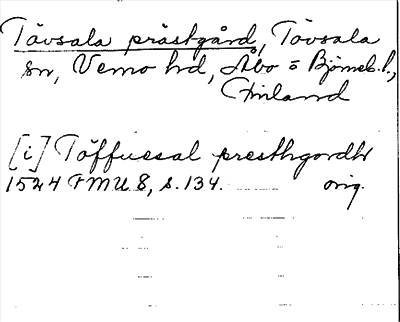 Tövsala prästgård, Tövsala
sn, Vemo hd, Åbo o Björneb. l.,
Finland
[i] Töffuesal presthgordh
1524 FMU 8, s. 134. orig.